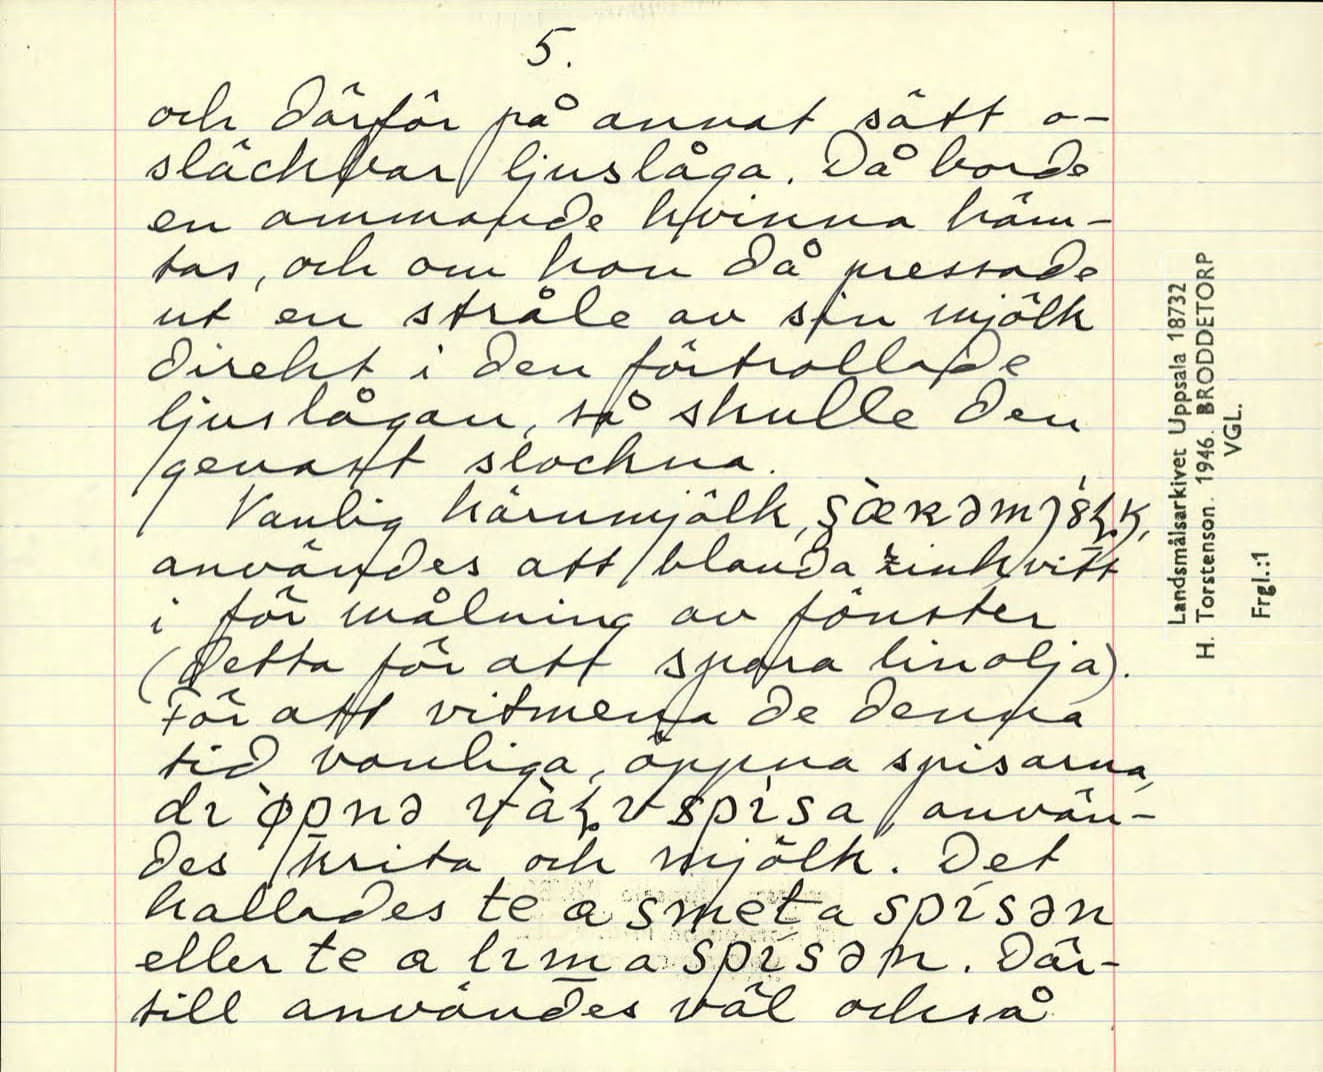 5.
och därför på annat sätt o-
släckbar ljuslåga. Då borde
en ammande kvinna häm-
tas, och om hon då pressade
ut en stråle av sin mjölk
direkt i den förtrollade
ljuslågan, så skulle den
genast slockna.
Vanlig kärnmjölk,
användes att blanda zinkvitt
i för målning av fönster
(Detta för att spara linolja).
För att vitmena de denna
tid vanliga, öppna spisarna,
använ-
des krita och mjölk. Det
kallades te a smeta spisən
eller te a lima spisən. Där-
till användes väl också
Landsmålsarkivet Uppsala 18732
H. Torstenson. 1946. BRODDETORP
VGL.
Frgl.:1